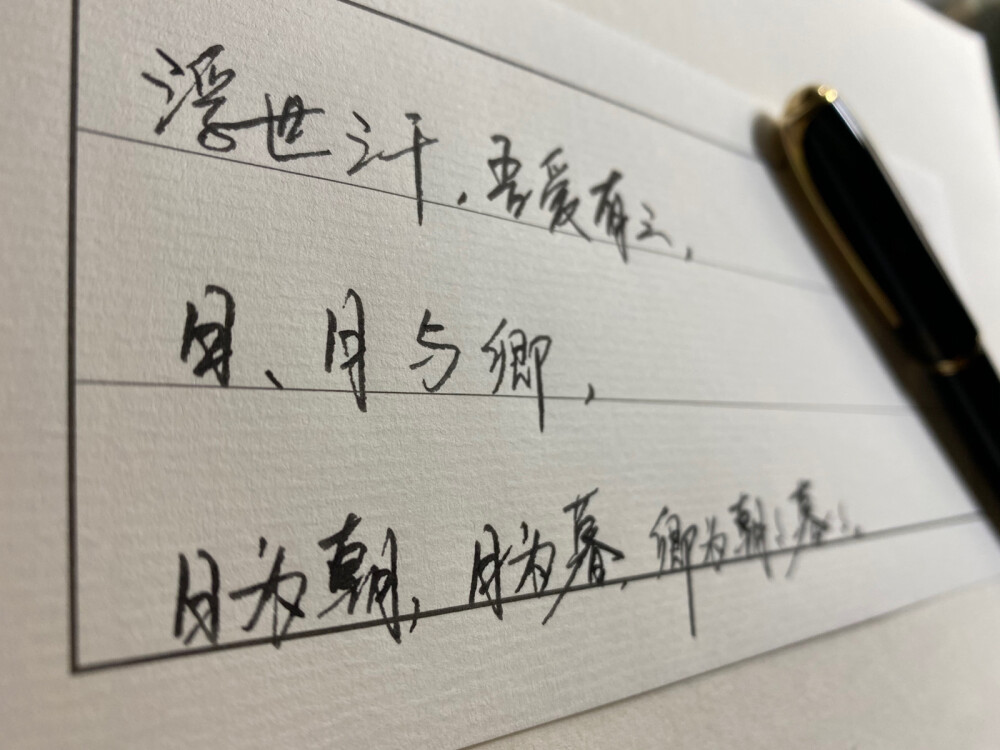 浮世三千，吾爱有三，
日、月与卿，
日为朝，月为暮，卿为朝朝暮暮。